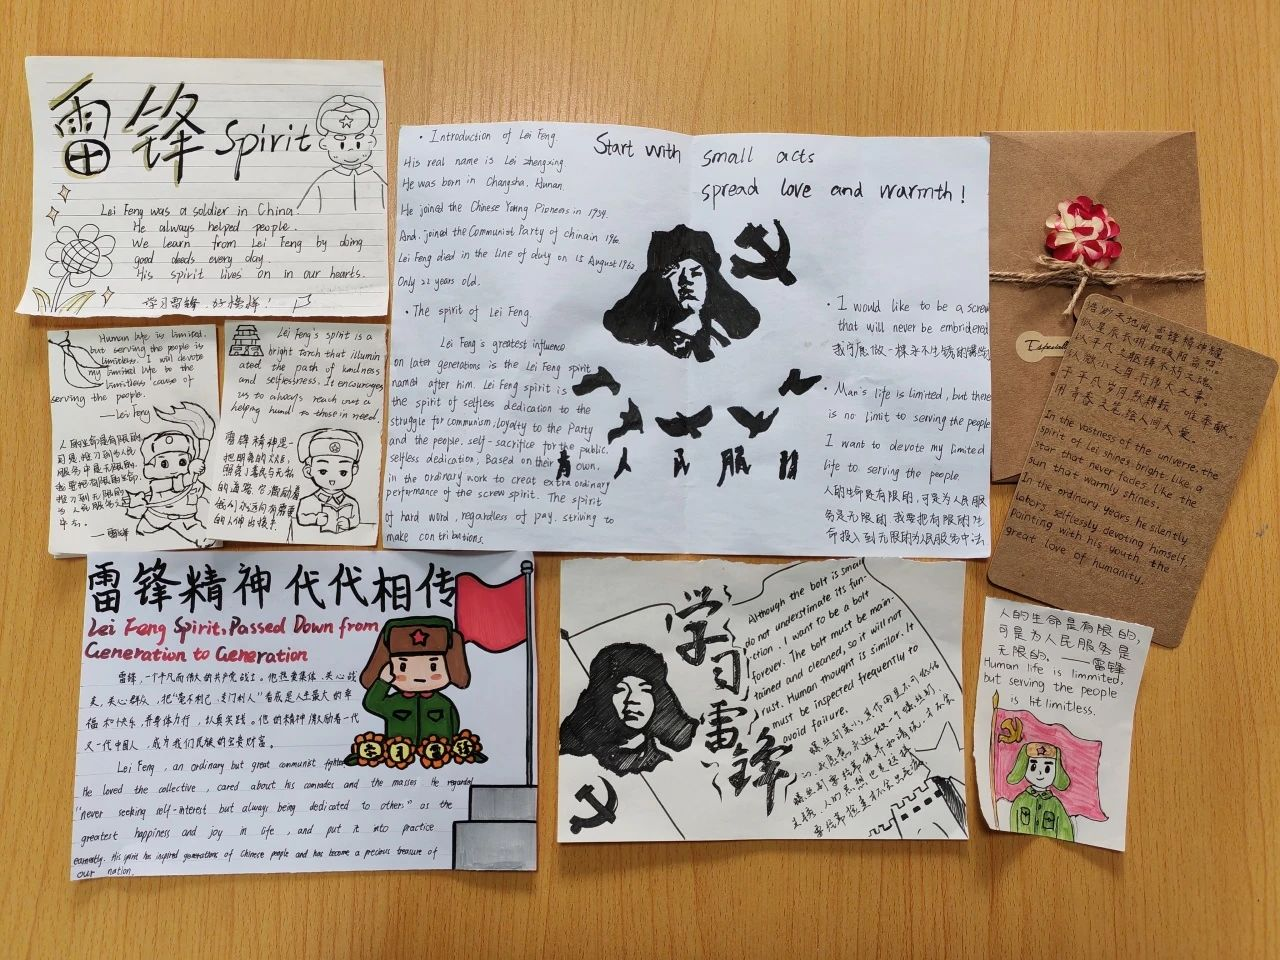 雷锋 Spirit
Lei Feng was a soldier in China.
He always helped people.
We learn from Lei Feng by doing
good deeds every day.
His spirit lives on in our hearts.
学习雷锋,好榜样!
Human life is limited,
but serving the people is
limitless. I will devote
my limited life to the
limitless cause of
serving the people.
——Lei Feng
人的生命是有限的
——雷锋
Lei Feng's spirit is a
bright torch that illumin
ated the path of kindness
and selflessness. It encourages
us to always reach out a
helping hand to those in need.
雷锋精神是一
把明亮的火炬,
照亮了善良与无私
的道路,它激励着
我们永远向有需要
的人伸出援手.
Start with small acts
spread love and warmth!
• Introduction of Lei Feng.
His real name is Lei zhengxing.
He was born in Changsha, Hunan.
He joined the Chinese Young Pioneers in 1954.
And joined the Communist Party of china in 1960.
Lei Feng died in the line of duty on 15 August 1962
Only 22 years old.
• The spirit of Lei Feng.
Lei Feng's greatest influence
on later generations is the Lei Feng spirit
named after him. Lei Feng spirit is
the spirit of selfless dedication to the
struggle for communism, loyalty to the Party
and the people, self-sacrifice for the public.
selfless dedication, Based on their own,
in the ordinary work to creat extra ordinary
performance of the screw spirit. The spirit
of hard word, regardless of pay, striving to
make contributions.
人民服
• I would like to be a screw
that will never be embridered
我宁愿做一棵永不生锈的螺丝
• Man's life is limited, but there
is no limit to serving the people
I want to devote my limited
life to serving the people.
人的生命是有限的,可是为人民服
务是无限的,我要把有限的生
命投入到无限的为人民服务中去
Especial
In the vastness of the universe, the
spirit of Lei shines bright. Like a
star that never fades, like the
sun that warmly shines.
In the ordinary years, he silently
labors, selflessly devoting himself,
Painting with his youth the
great love of humanity.
雷锋精神代代相传
Lei Feng Spirit, Passed Down from
Generation to Generation
雷锋,一个平凡而伟大的共产党战士。他热爱集体,关心战
友,关心群众,把“毫不利己,专门利人”看成是人生最大的幸
福和快乐,并身体力行,认真实践。他的精神激励着一代
又一代中国人,成为我们民族的宝贵财富。
Lei Feng, an ordinary but great communist fighter
He loved the collective, cared about his comrades and the masses. He regarded
"never seeking self-interest but always being dedicated to others" as the
greatest happiness and joy in life, and put it into practice
earnestly. His spirit has inspired generations of Chinese people and has become a precious treasure of
our nation.
学习雷锋
学习雷锋
Although the bolt is small
do not underestimate its fun-
ction. I want to be a bolt
forever. The bolt must be main-
tained and cleaned, so it will not
rust. Human thought is similar. It
must be inspected frequently to
avoid failure.
人的生命是有限的,
可是为人民服务是
无限的。——雷锋
Human life is limmited,
but serving the people
is litlimitless.